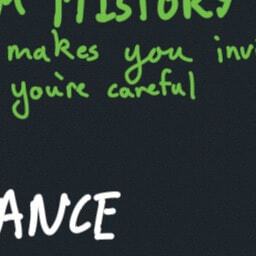 M HISTORY
makes you inv
you're careful
ANCE